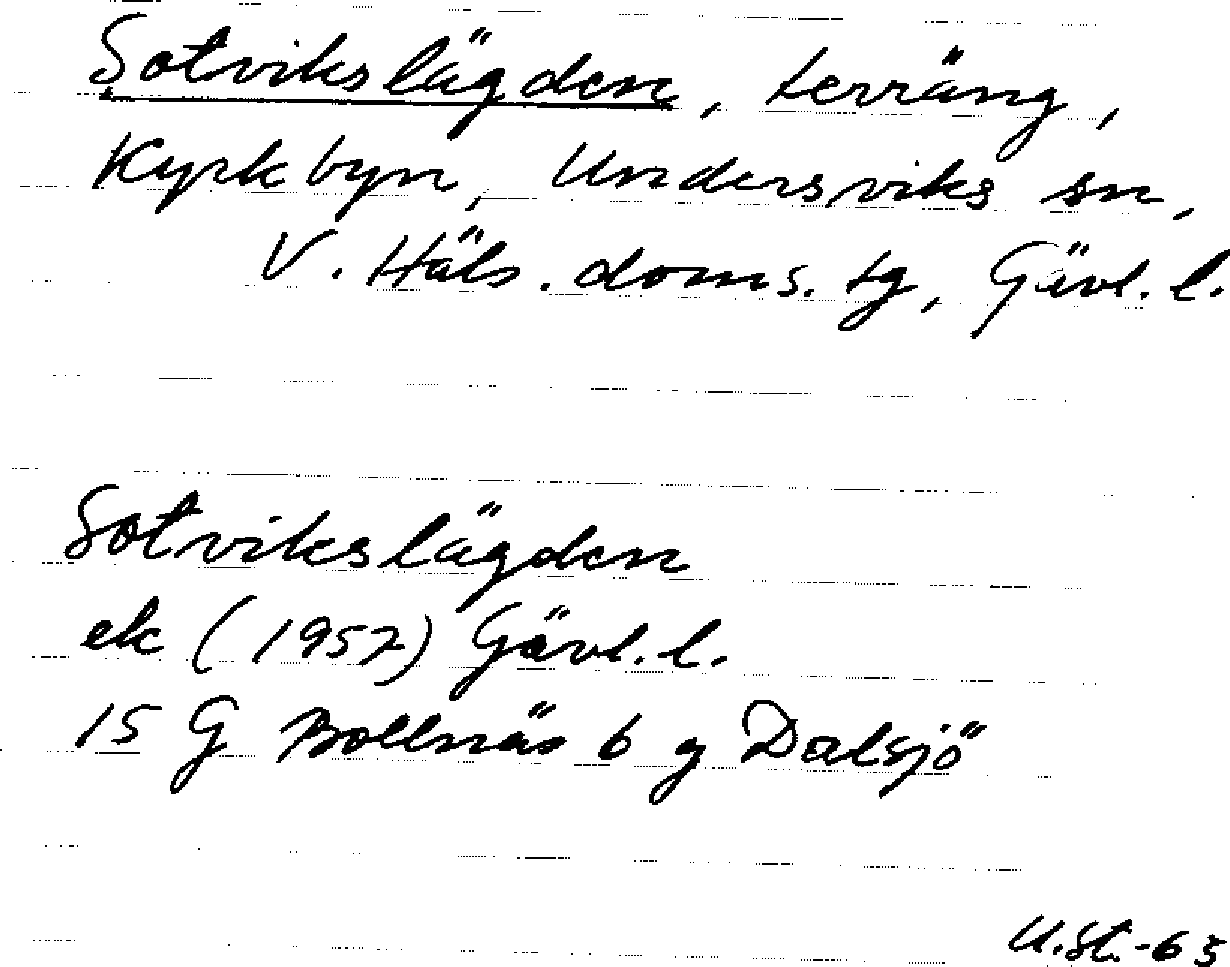 Sotvikslägden, terräng,
Kyrkbyn, Undersviks sn,
V. Häls. doms. tg, Gävl. l.
Sotvikslägden
ek (1957) Gävl. l.
15 G Bollnäs 6 g Dalsjö
U.St.-63